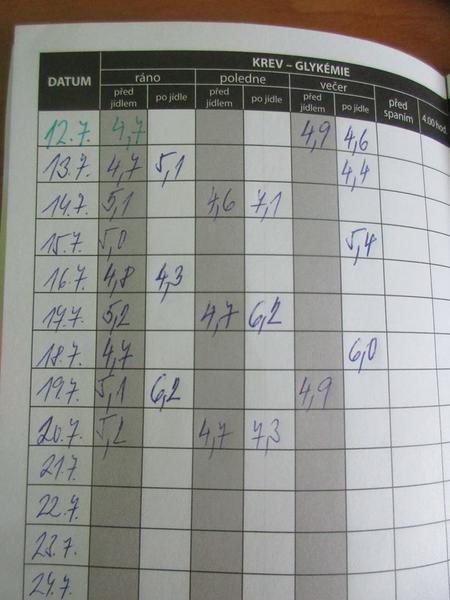 KREV – GLYKÉMIE
DATUM ráno poledne večer
před jídlem po jídle před jídlem po jídle před jídlem po jídle před spaním 4.00 hod.
12.7. 4,7 4,9 4,6
13.7. 4,7 5,1 4,4
14.7. 5,1 4,6 7,1
15.7. 5,0 5,4
16.7. 4,8 4,3
17.7. 5,2 4,7 6,2
18.7. 4,7 6,0
19.7. 5,1 6,2 4,9
20.7. 5,2 4,7 7,3
21.7.
22.7.
23.7.
24.7.